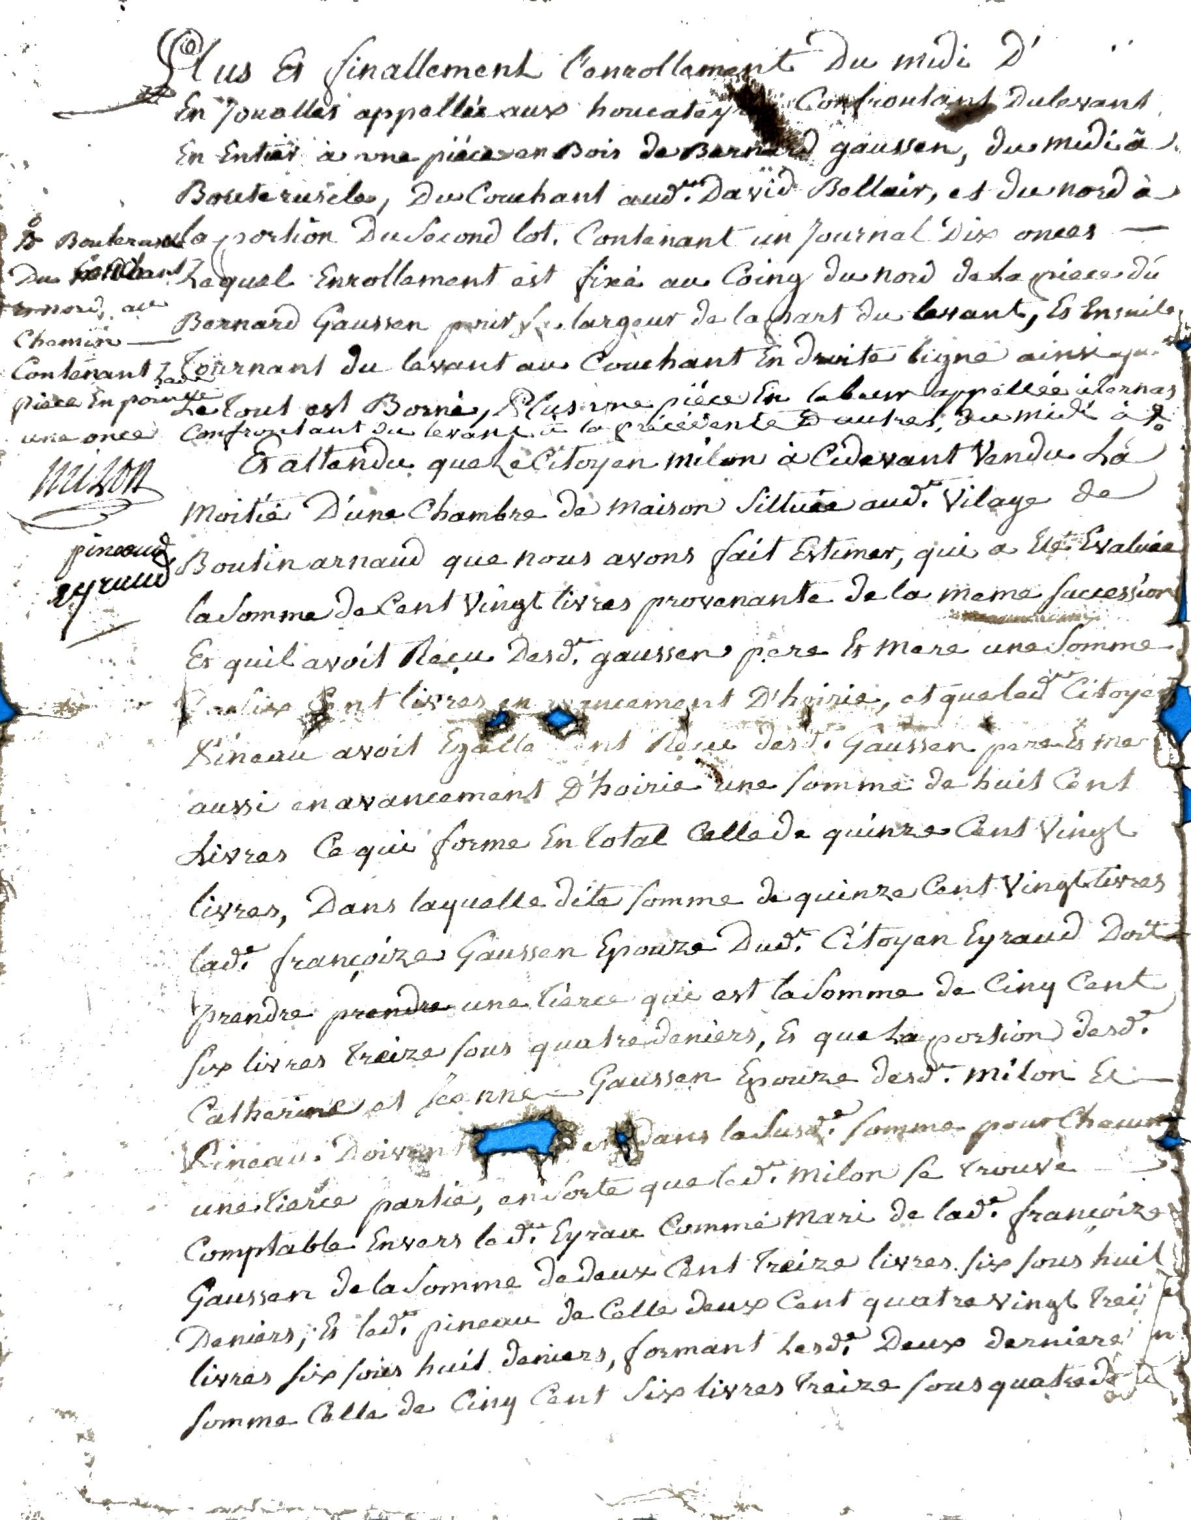 Plus Et finallement l'enrollement Du midi D'
En Joualles appellée aux houcateys Confrontant Dulevant
En Entier à une pièce en Bois de Bernard gaussen, du midi à
Bouterusele, Du Couchant aud.t David Bellair, et du nord à
la portion Du Second lot. Contenant un Journal Dix onces —
Lequel Enrollement est fixé au Coing du nord de la piece du
Bernard Gaussen pour la largeur de la part du levant, Et Ensuite
Tournant du levant au Couchant En droite ligne ainsi que
Le Tout est Borné, Plus une pièce En labeur appellée
Confrontant du levant à la précédente D'autres, du midi à
Du
nord, au
Chemin —
Contenant
pièce En
une once
milon
pineaud
eyraud
Et attendu que Le Citoyen milon à Cidevant Vendu La
Moitié D'une Chambre de maison Sittuée aud.t Vilage de
Boutin arnaud que nous avons fait Estimer, qui a Eté Evaluée
la Somme de Cent Vingt livres provenante de la meme succession
Et quil avoit Reçu Desd.t gaussen père Et Mere une Somme
Six Cent livres en avancement D'hoirie, et que led.t Citoyen
Pineau avoit Egallement Reçu desd.t Gaussen pere Et me
aussi en avancement D'hoirie une somme de huit Cent
Livres Ce qui forme En total Celle de quinze Cent Vingt
livres, Dans laquelle dite somme de quinze Cent Vingt livres
lad.e françoize Gaussen Epouze Dud.t Citoyen Eyraud Doit
prendre prendre une tierce qui est la Somme de Cinq Cent
Six livres treize sous quatre deniers, Et que La portion desd.e
Catherine et Jeanne Gaussen Epouze desd.t milon Et
Pineau. Doivent dans la Susd.e somme pour Chacune
une tierce partie, en Sorte que led.t milon se trouve
Comptable Envers led.t Eyrau Comme Mari de lad.e françoize
Gaussen de la Somme de deux Cent treize livres six sous huit
Deniers, Et led.t pineau de Celle deux Cent quatre vingt trei
livres six sous huit deniers, formant Lesd.e Deux derniere
somme Celle de Cinq Cent Six livres treize sous quatre de